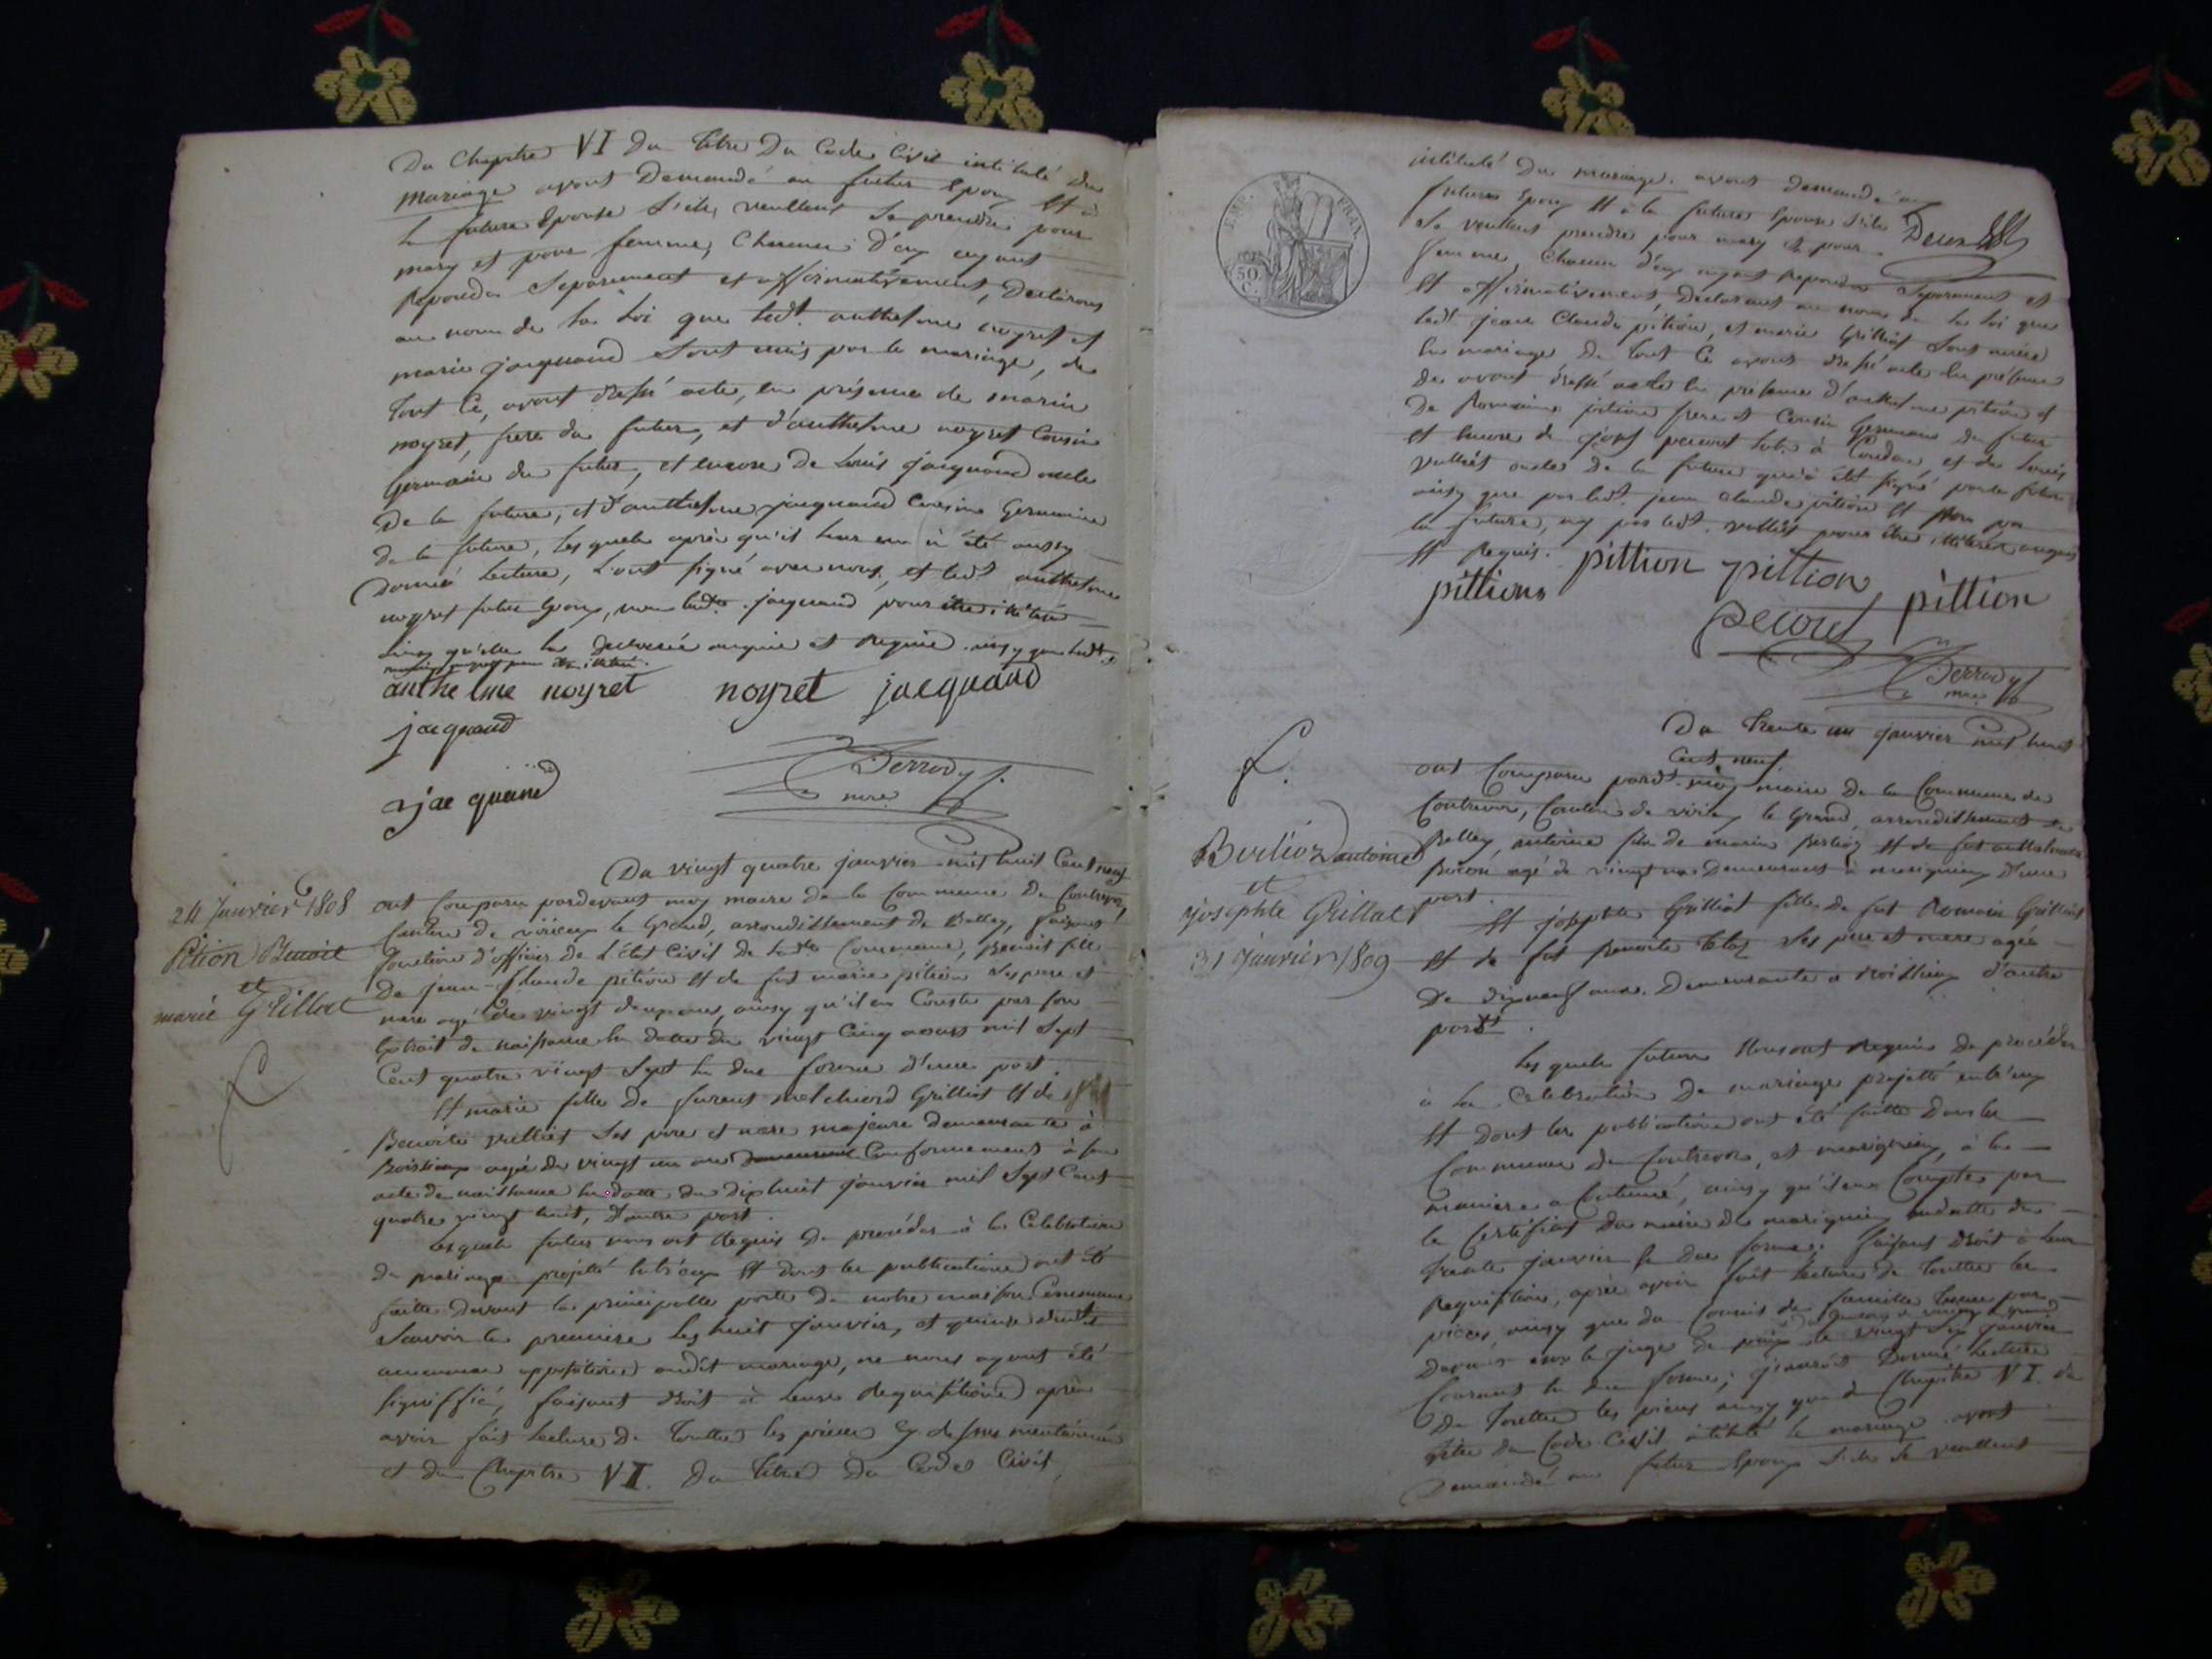 Du Chapitre VI du titre du Code Civil intitulé du
mariage avons demandé au futur Epoux Et à
la future Epouse s'ils veullent se prendre pour
mary et pour femme, Chacun d'eux ayant
repondu separement et affirmativement, declarons
au nom de la Loi que ledt. anthelme noyret et
marie jacquand sont unis par le mariage, de
tout Ce, avons dressé acte, en présence de marin
noyret, frere du futur, et d'anthelme noyret Cousin
Germain du futur, et encore de Louis jacquand oncle
De la future, et d'anthelme jacquand Cousin Germain
de la future, lesquels après qu'il leur en à été aussy
Donné Lecture, L'ont signé avec nous, et ledt anthelme
noyret futur Epoux, non ladte. jacquand pour être illitéré
ainsy qu'elle la declarée enquise et Requise
anthelme noyret noyret jacquand
jacquand
jacquand
Derrody
mre
Du vingt quatre janvier mil huit Cent neuf
24 Janvier 1808
Pition Benoit
et
marie Grillat
ont Comparu pardevant moy maire de la Commune de Contrevoz,
Canton de virieux le Grand, arrondissement de Belley, faisant
fonction d'officier de L'état Civil de ladte Commune, Benoit fils
De jean-Claude pition Et de fut marie pition ses pere et
mere agé de vingt deux ans, ainsy qu'il en Conste par son
Extrait de naissance en datte du vingt Cinq mil Sept
Cent quatre vingt sept en due forme d'une part.
Et marie fille de Laurent melchiord Grilliat Et de
Benoite vulliet ses pere et mere majeure demeurante à
agée de vingt un ans Conformement à son
acte de naissance en datte du dixhuit janvier mil Sept Cent
quatre vingt huit, d'autre part.
Lesquels futur nous ont Requis de proceder à la Celebration
du mariage projetté entr'eux Et dont les publications ont été
faitte devant la principalle porte de notre maison Commune
Scavoir la premiere Les huit janvier, et quinze dudit
aucunne opposition audit mariage, ne nous ayant été
signiffié, faisant droit à leurs Requisitions après
avoir fait Lecture de touttes les pièces Cy dessus mentionnée
et du Chapitre VI. du titre du Code Civil
intitulé Du mariage. avons demandé au
futur Epoux Et à la future Epouse s'ils
se veullent prendre pour mary Et pour
femme, Chacun d'eux ayant Repondu Separement et
Et affirmativement, declarons au nom de la loi que
ledt jean Claude pition, et marie Grilliat sont unis
en mariage de tout Ce avons dressé acte en présence
de avons dressé acte en presence d'anthelme pition et
De Romain pition frere et Cousin Germain du futur
Et encore de à Condon, et de Louis
vulliet oncle de la future qu'à été signé par le futur
ainsy que par ledt. jean claude pition Et non par
la future, ny par ledt. vulliet pour être illiteré enquis
Et Requis.
pittion pittion pittion pittion
pecoud
Derrody
mre
EMP. FRAN.
50
C.
Du trente un janvier mil huit
Cent neuf.
Berlioz antoine
et
josephte Grillat
31 Janvier 1809
ont Comparu pardt. moy maire de la Commune de
Contrevoz, Canton de virieux le Grand, arrondissement de
Belley, antoine fils de marin Berlioz Et de fut anthelmette
agé de vingt demeurant à marignieu d'une
part.
Et josephte Grilliat fille de fut Romain Grilliat
Et de fut Benoite ses pere et mere agée
De dixneuf ans. Demeurante à d'autre
part.
Lesquels futurs Nous ont Requis de procéder
à La Celebration De mariage projetté entr'eux
Et dont les publications ont été faitte dans les
Commune de Contrevoz, et marignieu, à la
maniere a Coutumé, ainsy qu'il en Compte par
le Certificat du maire de marignieu en datte du
trente janvier en due forme; faisant droit à leur
Requisition, après avoir fait Lecture de touttes les
pieces, ainsy que du Conseil de famille tenue par
devant mr le juge de paix de virieux le grand le vingt Six janvier
Courant en due forme; Donné Lecture
De touttes les pieces ainsy que du Chapitre VI. du
titre du Code Civil intitulé le mariage avons
Demandé au futur Epoux s'ils se veullent